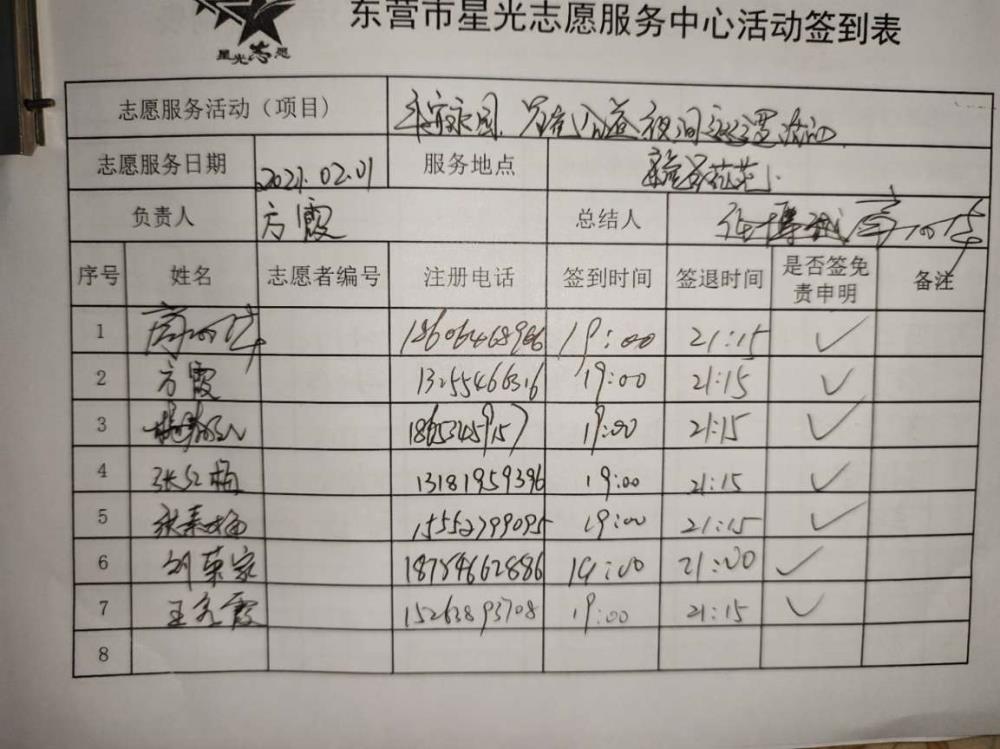 星光志愿
东营市星光志愿服务中心活动签到表
志愿服务活动（项目） 公益夜间
志愿服务日期 2021.02.01 服务地点
负责人 方霞 总结人
序号 姓名 志愿者编号 注册电话 签到时间 签退时间 是否签免责申明 备注
1 19:00 21:15 ✓
2 方霞 13255466316 19:00 21:15 ✓
3 19:00 21:15 ✓
4 张红梅 13181959396 19:00 21:15 ✓
5 张素梅 15552799095 19:00 21:15 ✓
6 刘荣家 18754662886 19:00 21:00 ✓
7 王秀霞 15263893708 19:00 21:15 ✓
8